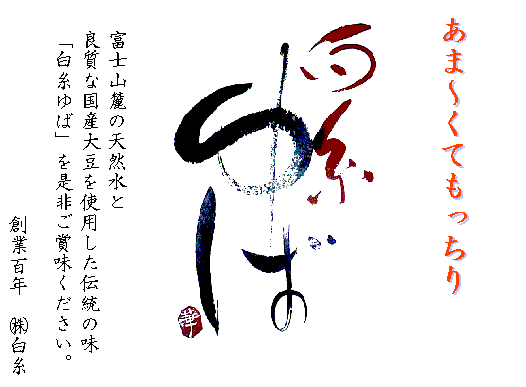 あま～くてもっちり
白糸
ゆば
富士山麓の天然水と
良質な国産大豆を使用した伝統の味
「白糸ゆば」を是非ご賞味ください。
創業百年　㈱白糸